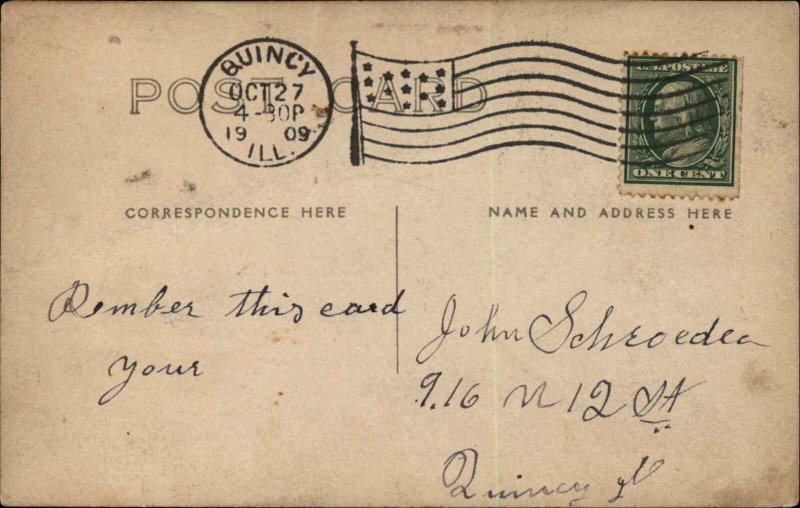 POST CARD
QUINCY
OCT 27
4-30P
1909
ILL.
U.S. POSTAGE
ONE CENT
CORRESPONDENCE HERE
NAME AND ADDRESS HERE
Rember this card
your
John Schroeder
916 N 12 St
Quincy Il